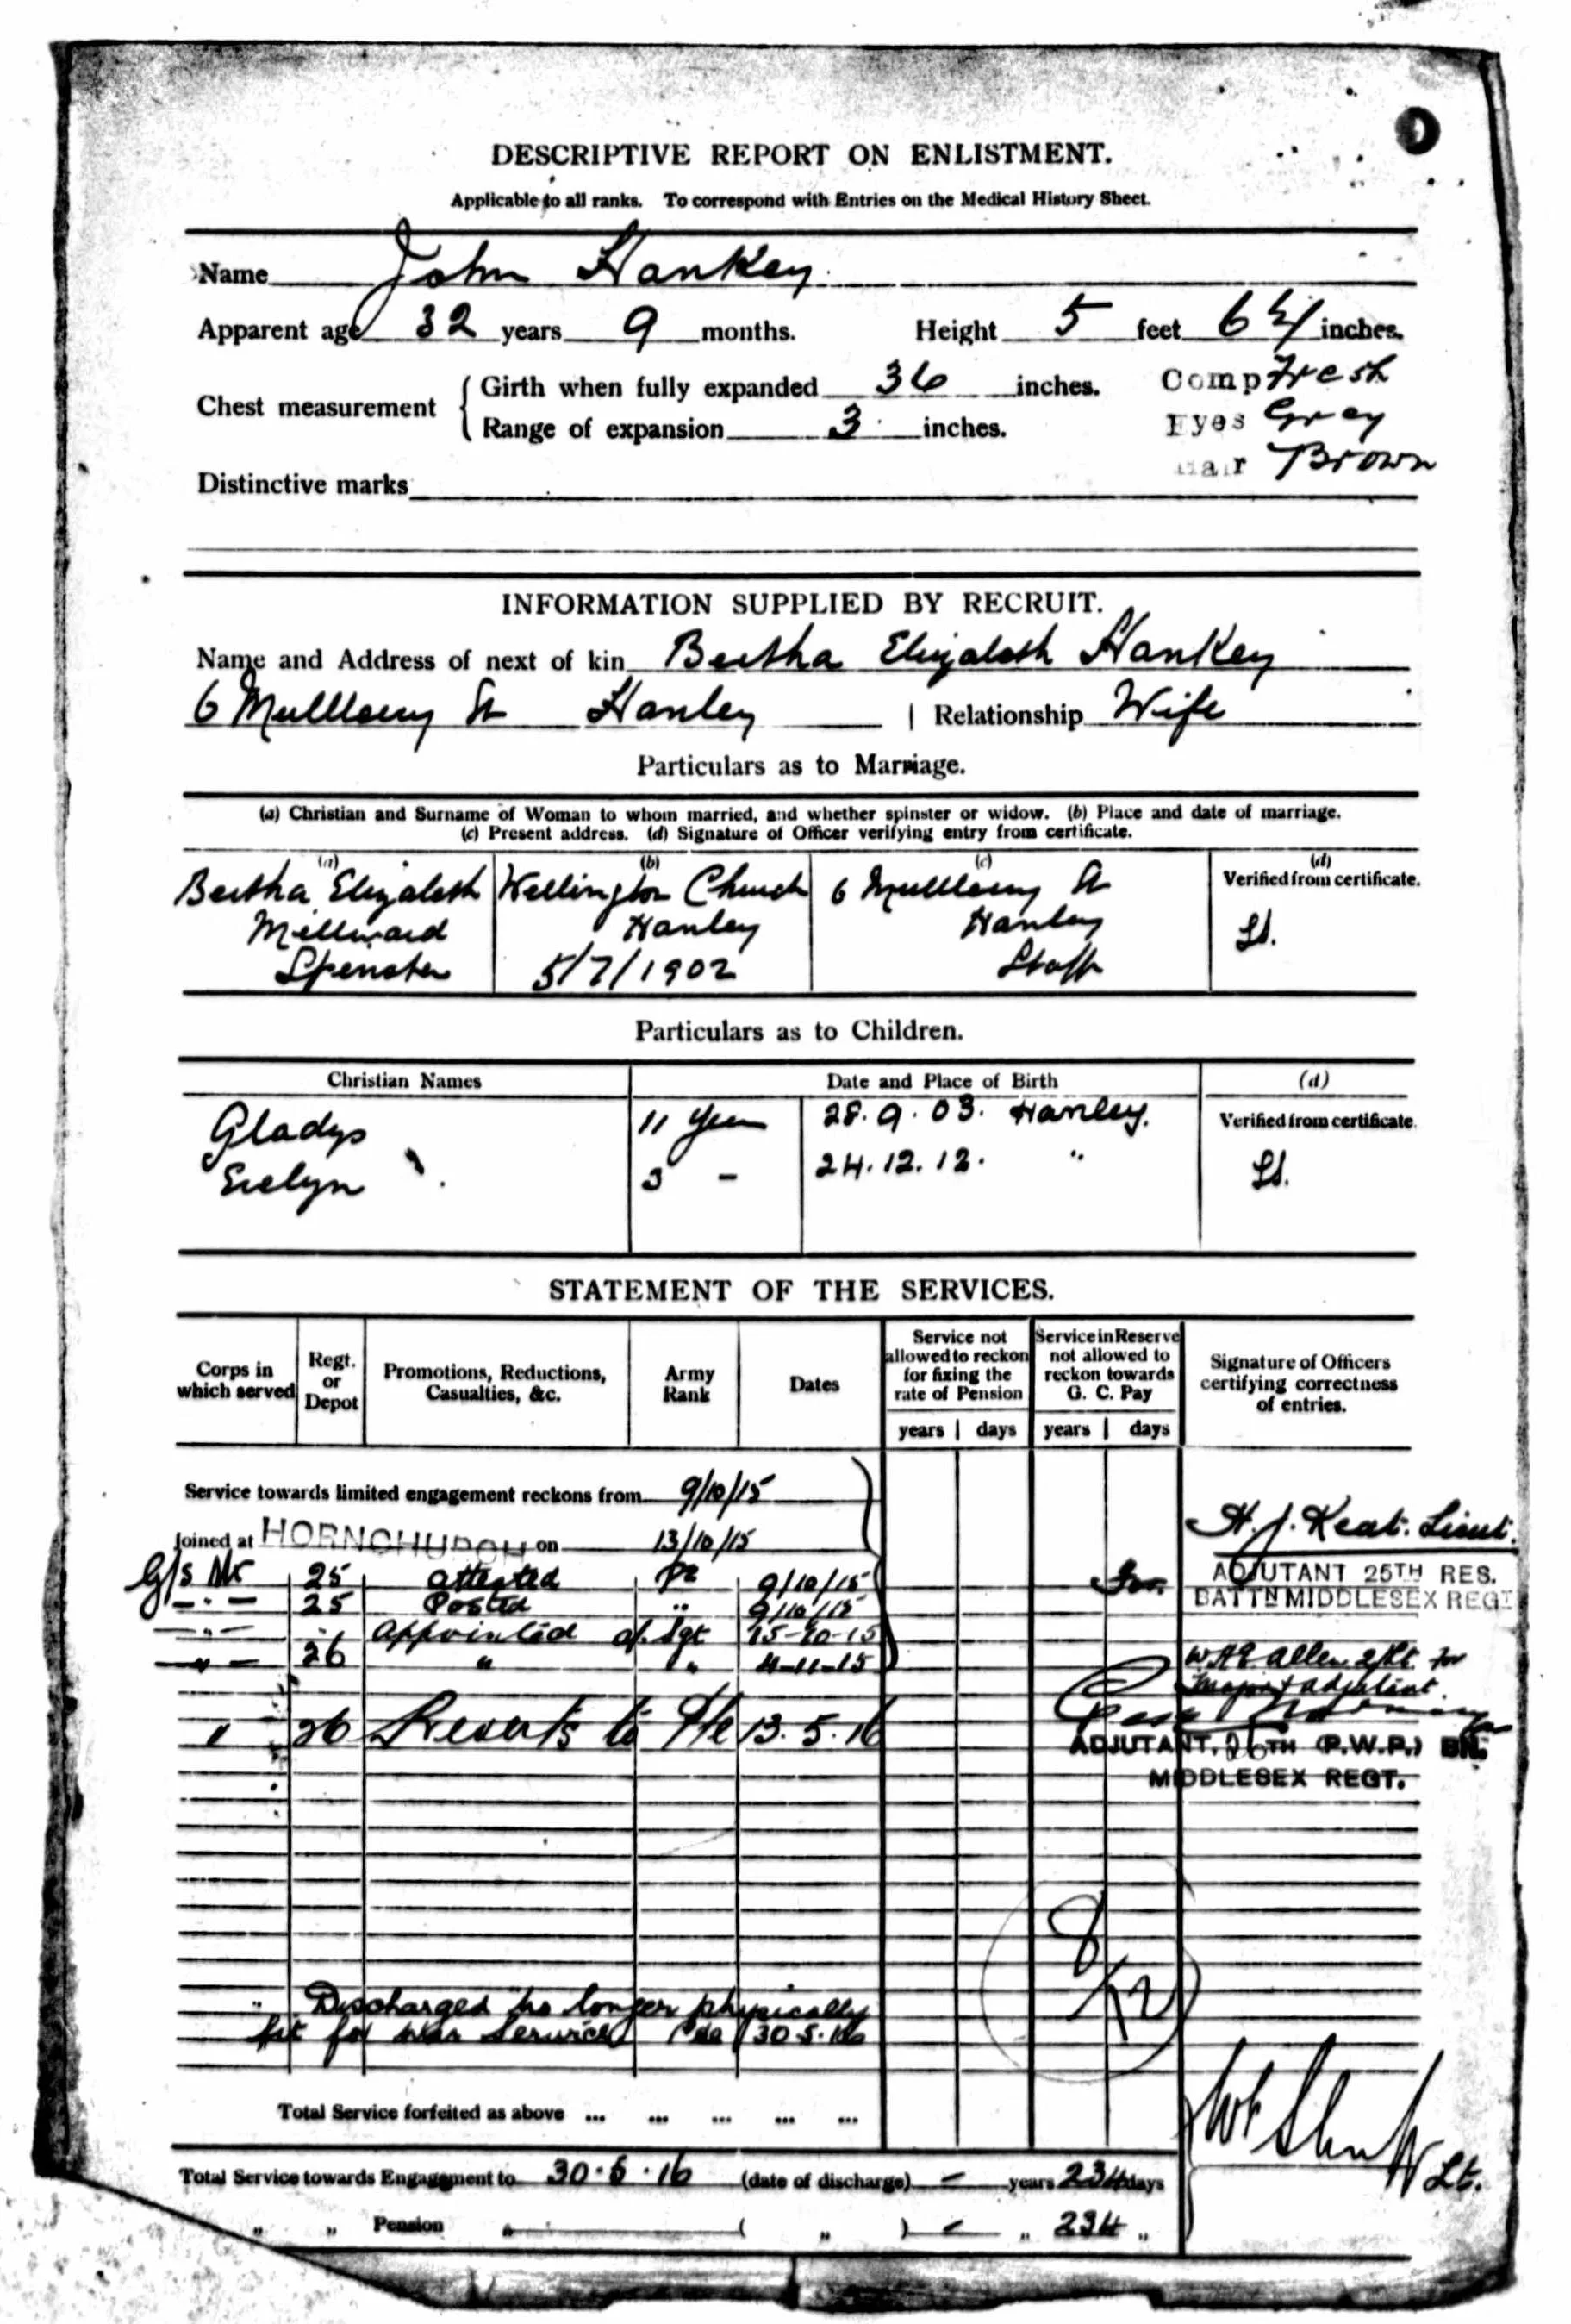 DESCRIPTIVE REPORT ON ENLISTMENT.
Applicable to all ranks. To correspond with Entries on the Medical History Sheet.
Name John Hankey
Apparent age 32 years 9 months. Height 5 feet 6 1/2 inches.
Chest measurement { Girth when fully expanded 36 inches. Comp Fresh
Range of expansion 3 inches. Eyes Grey
Hair Brown
Distinctive marks
INFORMATION SUPPLIED BY RECRUIT.
Name and Address of next of kin Bertha Elizabeth Hankey
6 Mullberry St Hanley | Relationship Wife
Particulars as to Marriage.
(a) Christian and Surname of Woman to whom married, and whether spinster or widow. (b) Place and date of marriage.
(c) Present address. (d) Signature of Officer verifying entry from certificate.
(a) (b) (c) (d)
Bertha Elizabeth Wellington Church 6 Mullberry St Verified from certificate.
Millward Hanley Hanley
Spinster 5/7/1902 Staff
Particulars as to Children.
Christian Names Date and Place of Birth (d)
Gladys 11 Years 28.9.03. Hanley. Verified from certificate.
Evelyn 3 - 24.12.12. "
STATEMENT OF THE SERVICES.
Corps in which served Regt. or Depot Promotions, Reductions, Casualties, &c. Army Rank Dates Service not allowed to reckon for fixing the rate of Pension Service in Reserve not allowed to reckon towards G. C. Pay Signature of Officers certifying correctness of entries.
years | days years | days
Service towards limited engagement reckons from 9/10/15
Joined at HORNCHURCH on 13/10/15 H. J. Keat. Lieut.
G/S Mx 25 attested Pte 9/10/15 ADJUTANT 25TH RES.
- " - 25 Posted " 9/10/15 BATTN MIDDLESEX REGT
- " - " Appointed a/. Sgt 15-10-15
- " - 26 " " 4-11-15 W A E Allen 2/Lt for
Major & adjutant.
" 26 Reverts to Pte 13.5.16
ADJUTANT, 26TH (P.W.P.) BN.
MIDDLESEX REGT.
8/12
" Discharged no longer physically
fit for War Service Pte 30.5.16
Total Service forfeited as above ... ... ... ... ...
Total Service towards Engagement to 30.5.16 (date of discharge) - years 234 days
Lt.
" " Pension " ( " ) - " 234 "